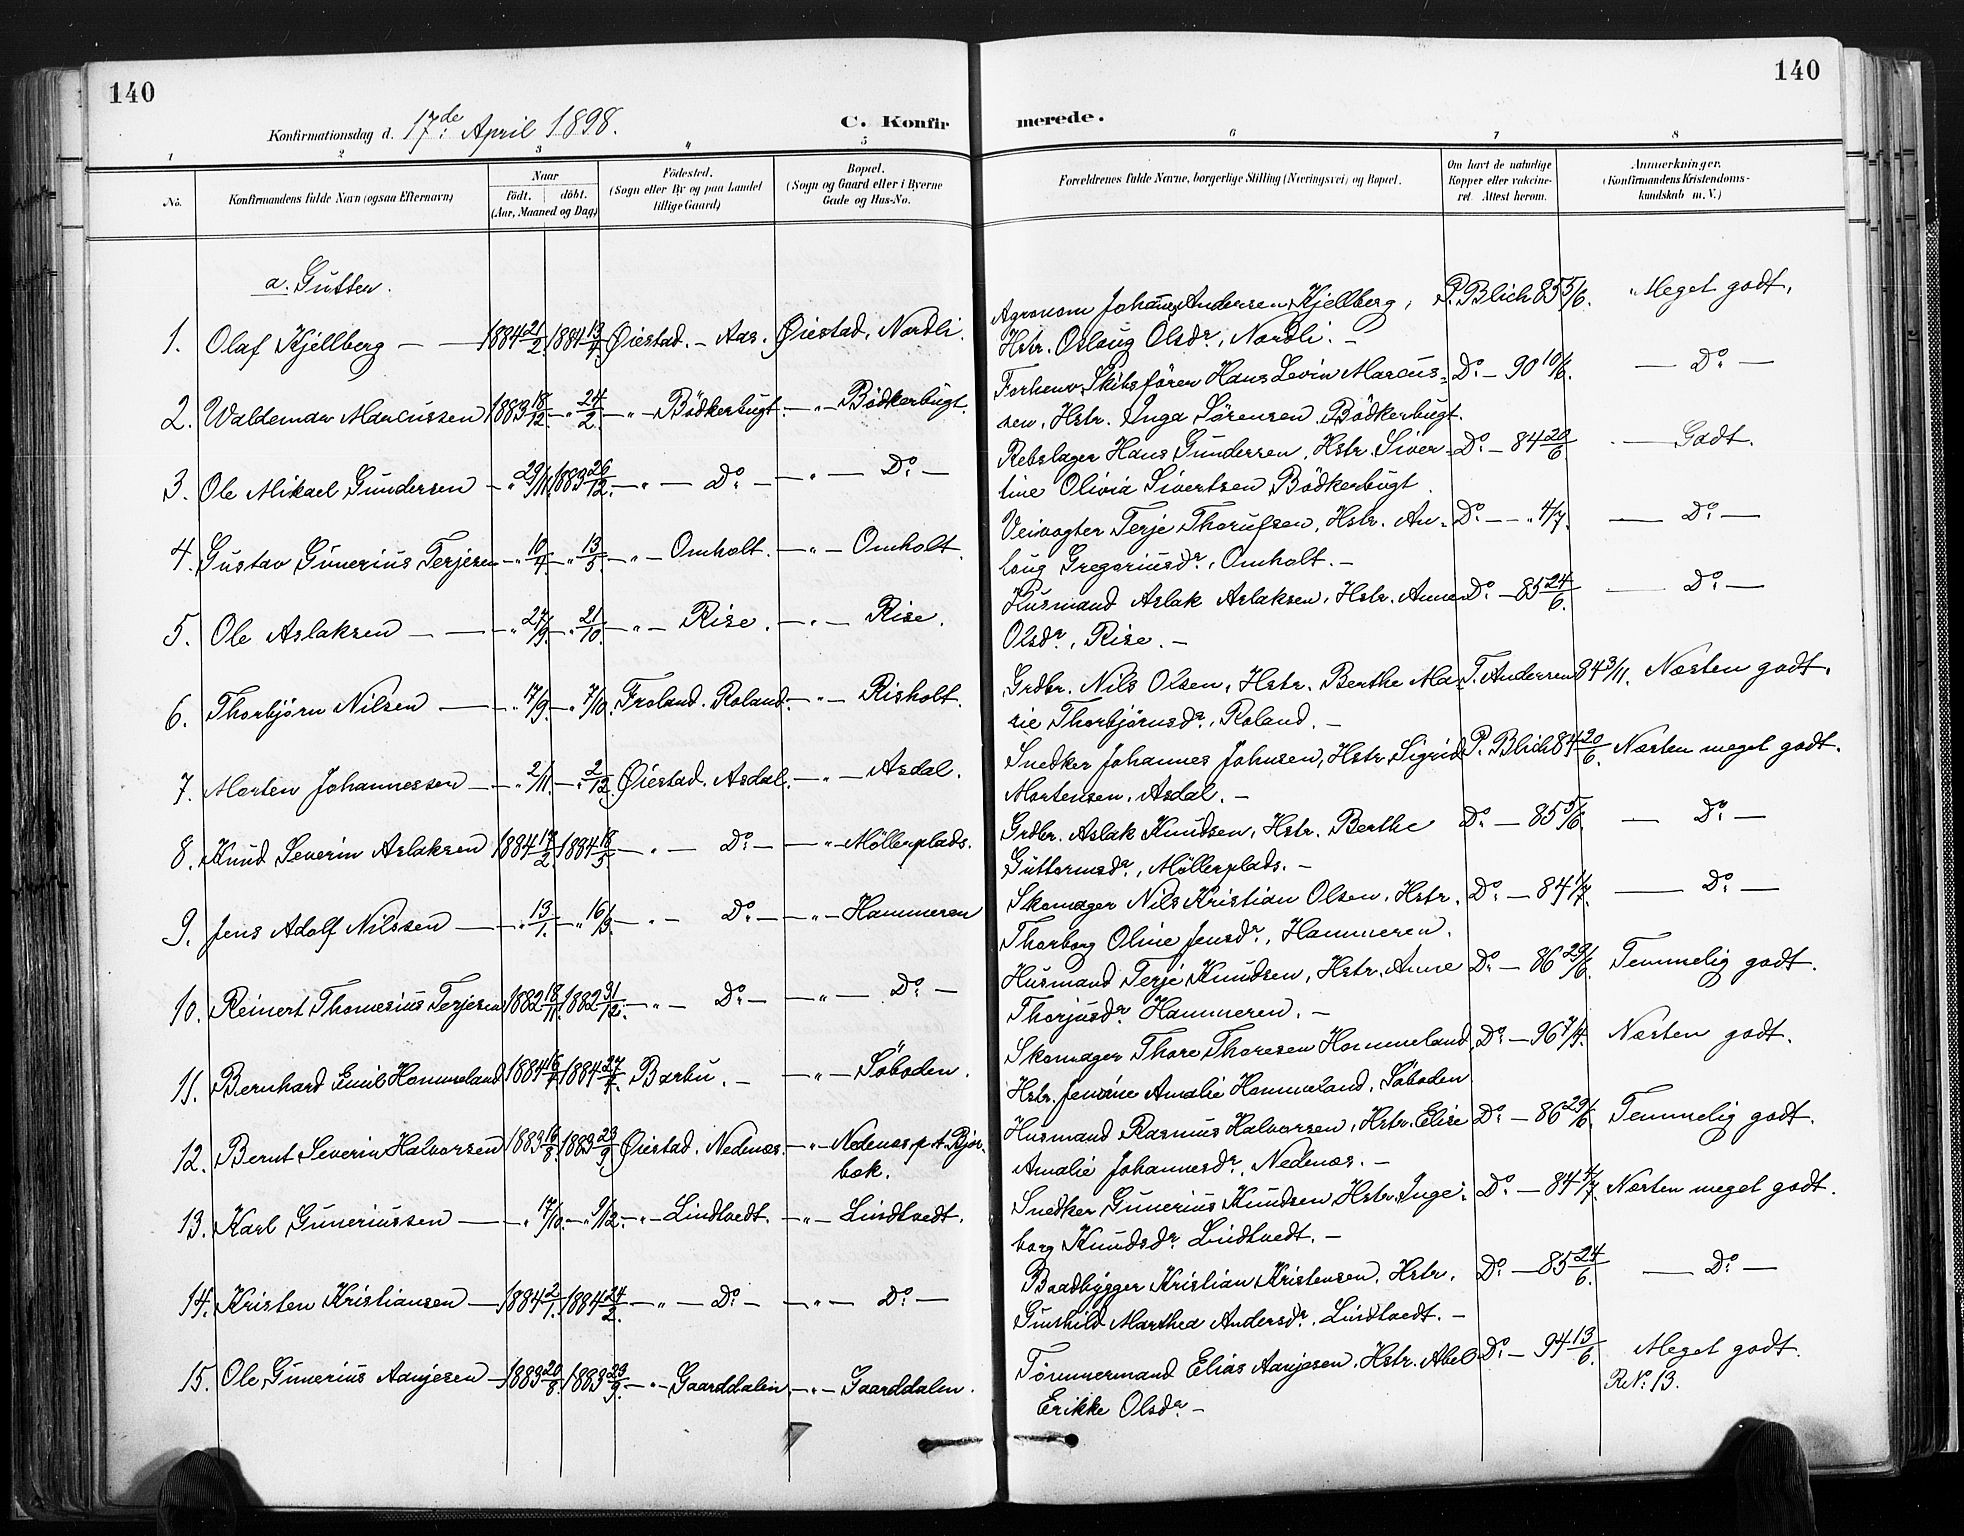 140
140
Konfirmationsdag d. 17de April 1898.
C. Konfirmerede.
1 2 3 4 5 6 7 8
No.
Konfirmandens fulde Navn (ogsaa Efternavn)
Naar
födt. döbt.
(Aar, Maaned og Dag)
Födested.
(Sogn eller By og paa Landet
tillige Gaard)
Bopæl.
(Sogn og Gaard eller i Byerne
Gade og Hus-No.
Forældrenes fulde Navne, borgerlige Stilling (Næringsvei) og Bopæl.
Om havt de naturlige
Kopper eller vakcineret.
Attest herom.
Anmærkninger.
(Konfirmandens Kristendoms-
kundskab m. V.)
a. Gutter.
1. Olaf Kjellberg — 1884 21/2 1884 13/4 Øiestad. - Aas. Øiestad, Nordli. Agronom Johannes Andersen Kjellberg, P. Blich 85 5/6. Meget godt.
Hstr. Oslaug Olsdr., Nordli. -
2. Waldemar Marcussen 1883 18/12 - " 24/2 - " - Bödkerbugt. - " - Bödkerbugt. Forhenv. Skibsförer Hans Levin Marcus- Do - 90 10/6. - Do -
sen, Hstr. Inga Sørensen, Bödkerbugt.
3. Ole Mikael Gundersen - " 29/11 1883 26/12 - " - Do - - " - Do - Rebslager Hans Gundersen, Hstr. Siver- Do - 84 20/6 - Godt.
tine Olivia Sivertsen Bödkerbugt.
4. Gustav Gunerius Terjesen - " 10/4 - " 13/5 - " - Omholt. - " - Omholt. Veivogter Terje Thorufsen, Hstr. An- Do - " 4/7. - Do -
laug Gregoriusdr., Omholt. -
5. Ole Aslaksen - " 27/9 - " 21/10 - " - Rise. - " - Rise. Husmand Aslak Aslaksen, Hstr. Anne Do - 85 24/6. - Do -
Olsdr., Rise. -
6. Thorbjörn Nilsen - " 17/9 - " 7/10 Froland. Roland. - " - Risholt. Grdbr. Nils Olsen, Hstr. Berthe Ma- T. Andersen 84 3/11. Næsten godt.
rie Thorbjörnsdr., Roland. -
7. Morten Johannessen - " 2/11 - " 2/12 Øiestad. Asdal. - " - Asdal. Snedker Johannes Johnsen, Hstr. Sigrid P. Blich 84 20/6. Næsten meget godt.
Mortensen, Asdal. -
8. Knud Severin Aslaksen 1884 17/2 1884 18/5 - " - Do - - " - Möllerplads. Grdbr. Aslak Knudsen, Hstr. Berthe Do - 85 5/6. - Do -
Guttormsdr., Möllerplads. -
9. Jens Adolf Nilssen - " 13/1 - " 16/3 - " - Do - - " - Hammeren Skomager Nils Kristian Olsen, Hstr. Do - 84 1/7. - Do -
Thorborg Oline Jensdr., Hammeren.
10. Reinert Thomesius Terjesen 1882 18/11 1882 31/12 - " - Do - - " - Do - Husmand Terje Knudsen, Hstr. Anne Do - 86 29/6. Temmelig godt.
Thorjusdr. Hammeren. -
11. Bernhard Emil Hommeland 1884 16/4 1884 27/7 Barbu. - - " - Söboden. Skomager Thore Thoresen Hommeland, Do - 96 7/4. Næsten godt.
Hstr. Jensine Amalie Hommeland, Söboden
12. Bernt Severin Halvorsen 1883 16/8 1883 23/9 Øiestad. Nedenæs. - " - Nedenæs, p. t. Bjor- Husmand Rasmus Halvorsen, Hstr. Elise Do - 86 29/6. Temmelig godt.
bæk. Amalie Johannesdr., Nedenæs. -
13. Karl Guneriussen - " 17/10 - " 9/12 - " - Lindtvedt. - " - Lindtvedt. Snedker Gunerius Knudsen, Hstr. Inge- Do - 84 4/7. Næsten meget godt.
borg Knudsdr. Lindtvedt. -
14. Kristen Kristiansen 1884 2/1 1884 24/2 - " - Do - - " - Do - Baadbygger Kristian Kristensen, Hstr. Do - 85 24/6. - Do -
Gunhild Marthea Andersdr. Lindtvedt. -
15. Ole Gunerius Aanjesen 1883 20/8 1883 29/9 - " - Gaarddalen - " - Gaarddalen. Tömmermand Elias Aanjesen, Hstr. Abel Do - 94 13/6. Meget godt.
Erikke Olsdr. - R. No. 13.